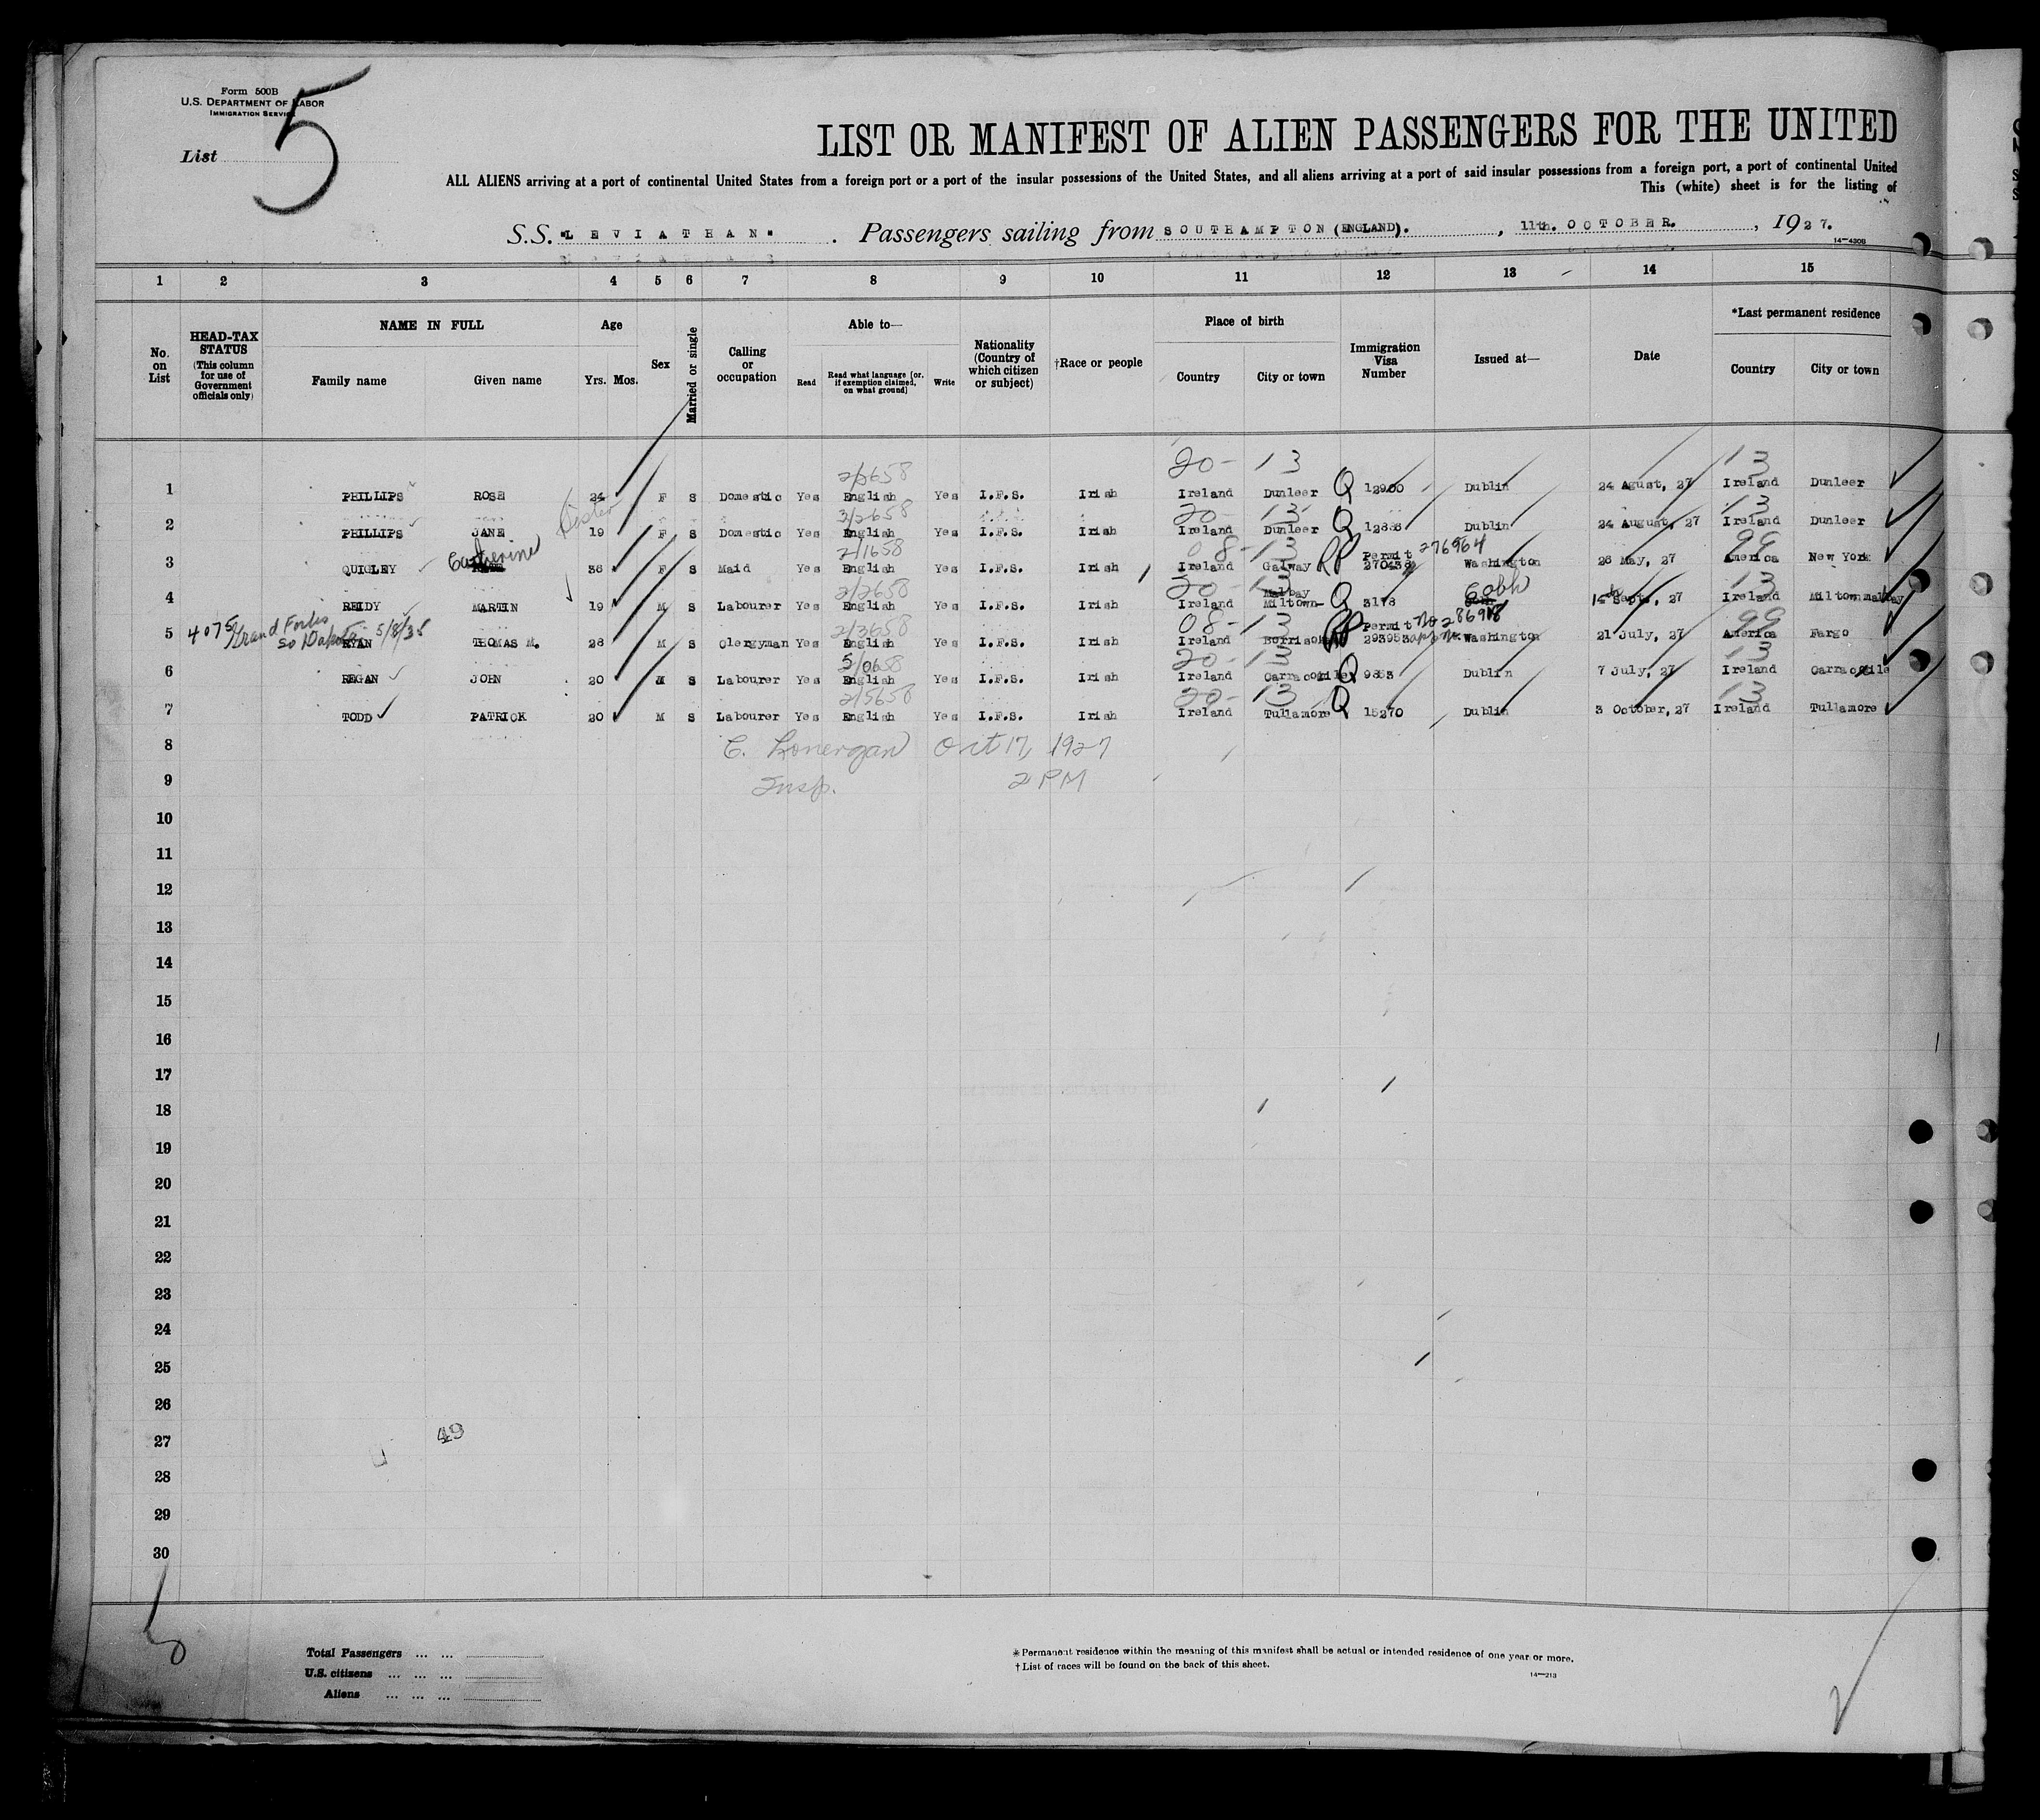 Form 500B
U.S. DEPARTMENT OF LABOR
IMMIGRATION SERVICE
List 5
LIST OR MANIFEST OF ALIEN PASSENGERS FOR THE UNITED
ALL ALIENS arriving at a port of continental United States from a foreign port or a port of the insular possessions of the United States, and all aliens arriving at a port of said insular possessions from a foreign port, a port of continental United
This (white) sheet is for the listing of
S.S. "LEVIATHAN" . Passengers sailing from SOUTHAMPTON (ENGLAND). , 11th. OCTOBER. , 1927.
14—430B
1 2 3 4 5 6 7 8 9 10 11 12 13 14 15
No. on List
HEAD-TAX STATUS (This column for use of Government officials only)
NAME IN FULL
Family name Given name
Age
Yrs. Mos.
Sex
Married or single
Calling or occupation
Able to—
Read Read what language (or, if exemption claimed, on what ground) Write
Nationality (Country of which citizen or subject)
†Race or people
Place of birth
Country City or town
Immigration Visa Number
Issued at—
Date
*Last permanent residence
Country City or town
2/3658 20- 13 13
1 PHILLIPS ROSE 24 F S Domestic Yes English Yes I.F.S. Irish Ireland Dunleer Q 12900 Dublin 24 Agust, 27 Ireland Dunleer
Sister 3/2658 20- 13 13
2 PHILLIPS JANE 19 F S Domestic Yes English Yes I.F.S. Irish Ireland Dunleer Q 12888 Dublin 24 August, 27 Ireland Dunleer
Catherine 2/1658 08-13 RP Permit 276964 99
3 QUIGLEY 36 F S Maid Yes English Yes I.F.S. Irish Ireland Galway 270438 Washington 26 May, 27 America New York
2/2658 20- 13 Malbay Cobh 13
4 REIDY MARTIN 19 M S Labourer Yes English Yes I.F.S. Irish Ireland Miltown- Q 3178 14th Sept., 27 Ireland Miltownmalbay
4075 Grand Forks So Dakota 5/8/35 2/3658 08-13 RP Permit No 286918 99
5 RYAN THOMAS M. 28 M S Clergyman Yes English Yes I.F.S. Irish Ireland 293953 Washington 21 July, 27 America Fargo
5/0658 20- 13 13
6 REGAN JOHN 20 M S Labourer Yes English Yes I.F.S. Irish Ireland Q Dublin 7 July, 27 Ireland
2/5658 20- 13 13
7 TODD PATRICK 20 M S Labourer Yes English Yes I.F.S. Irish Ireland Tullamore Q 15270 Dublin 3 October, 27 Ireland Tullamore
8 C. Lonergan Oct 17, 1927
9 Insp. 2 PM
10
11
12
13
14
15
16
17
18
19
20
21
22
23
24
25
26
27 49
28
29
30
Total Passengers ... ...
U.S. citizens ... ... ...
Aliens ... ... ...
*Permanent residence within the meaning of this manifest shall be actual or intended residence of one year or more.
†List of races will be found on the back of this sheet.
14—213